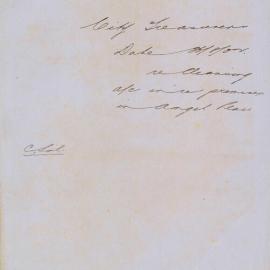 City Treasurer
Date
re Cleaning
a/c in re premises
in Angel Place
C. Sol.